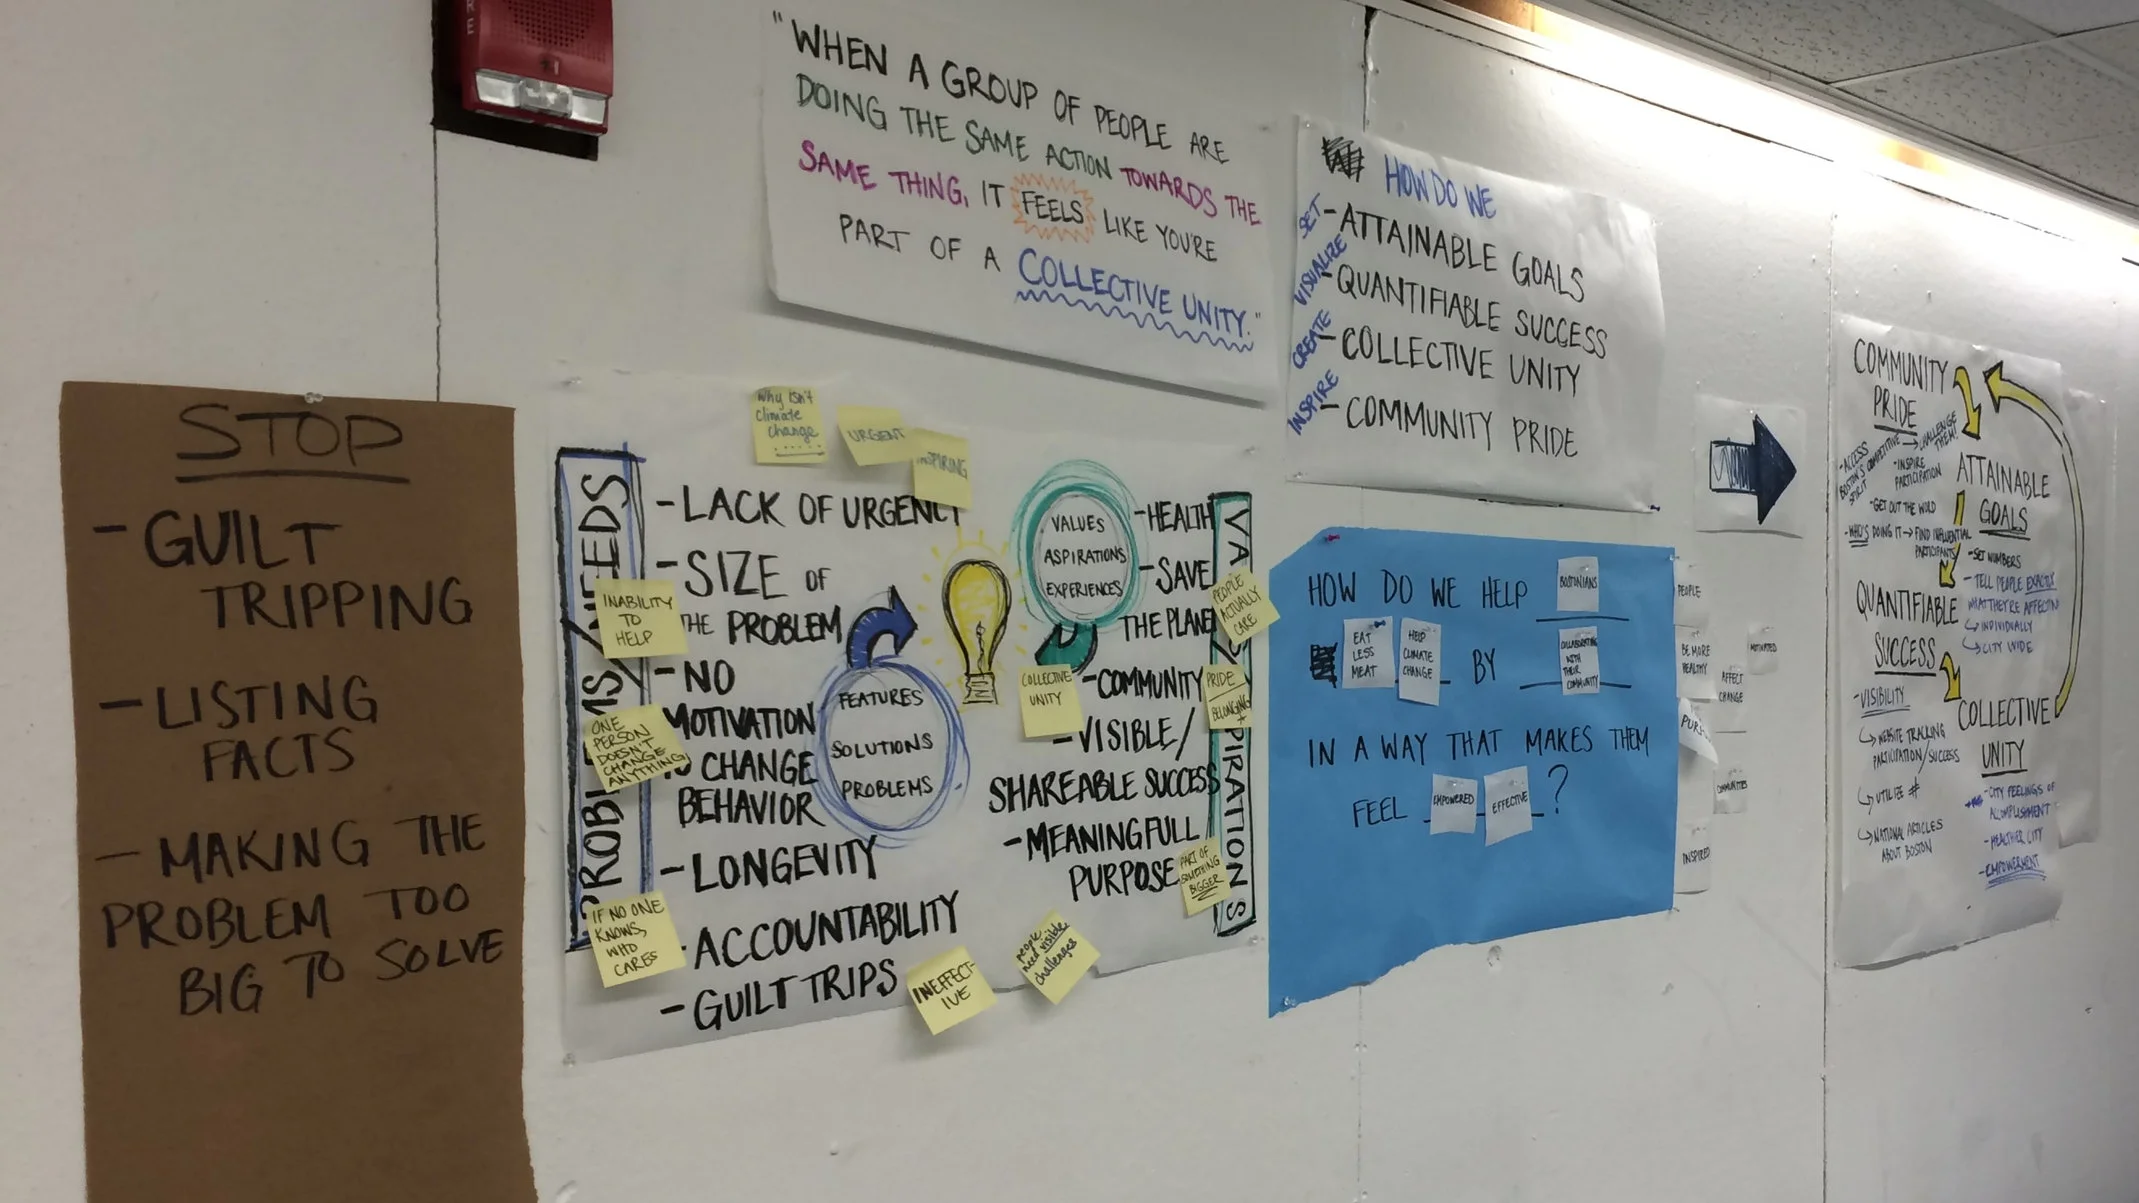 STOP
- GUILT
TRIPPING
- LISTING
FACTS
- MAKING THE
PROBLEM TOO
BIG TO SOLVE
"WHEN A GROUP OF PEOPLE ARE
DOING THE SAME ACTION TOWARDS THE
SAME THING, IT FEELS LIKE YOU'RE
PART OF A COLLECTIVE UNITY."
Why isn't
climate
change
URGENT
INSPIRING
PROBLEMS/NEEDS
- LACK OF URGENCY
- SIZE OF
THE PROBLEM
INABILITY
TO
HELP
- NO
MOTIVATION
CHANGE
BEHAVIOR
ONE
PERSON
DOESN'T
CHANGE
ANYTHING
- LONGEVITY
- ACCOUNTABILITY
- GUILT TRIPS
IF NO ONE
KNOWS,
WHO
CARES
INEFFECT-
IVE
people
need visible
challenges
FEATURES
SOLUTIONS
PROBLEMS
VALUES
ASPIRATIONS
EXPERIENCES
- HEALTH
- SAVE
THE PLANET
PEOPLE
ACTUALLY
CARE
COLLECTIVE
UNITY
- COMMUNITY
PRIDE
BELONGING
- VISIBLE/
SHAREABLE SUCCESS
- MEANINGFULL
PURPOSE
PART OF
SOMETHING
BIGGER
HOW DO WE
SET - ATTAINABLE GOALS
VISUALIZE - QUANTIFIABLE SUCCESS
CREATE - COLLECTIVE UNITY
INSPIRE - COMMUNITY PRIDE
HOW DO WE HELP BOSTONIANS
EAT
LESS
MEAT
HELP
CLIMATE
CHANGE
BY
COLLABORATING
WITH
THEIR
COMMUNITY
IN A WAY THAT MAKES THEM
FEEL EMPOWERED EFFECTIVE ?
PEOPLE
BE MORE
HEALTHY
MOTIVATED
AFFECT
CHANGE
COMMUNITIES
INSPIRED
COMMUNITY
PRIDE
- ACCESS
BOSTON'S COMPETITIVE
SPIRIT
CHALLENGE
THEM!
- INSPIRE
PARTICIPATION
- GET OUT THE WORD
- WHO'S DOING IT → FIND INFLUENTIAL
PARTICIPANTS
ATTAINABLE
GOALS
- SET NUMBERS
- TELL PEOPLE EXACTLY
WHAT THEY'RE AFFECTING
INDIVIDUALLY
CITY WIDE
QUANTIFIABLE
SUCCESS
- VISIBILITY
WEBSITE TRACKING
PARTICIPATION/SUCCESS
UTILIZE #
NATIONAL ARTICLES
ABOUT BOSTON
COLLECTIVE
UNITY
- CITY FEELINGS OF
ACOMPLISHMENT
- HEALTHIER CITY
- EMPOWERMENT